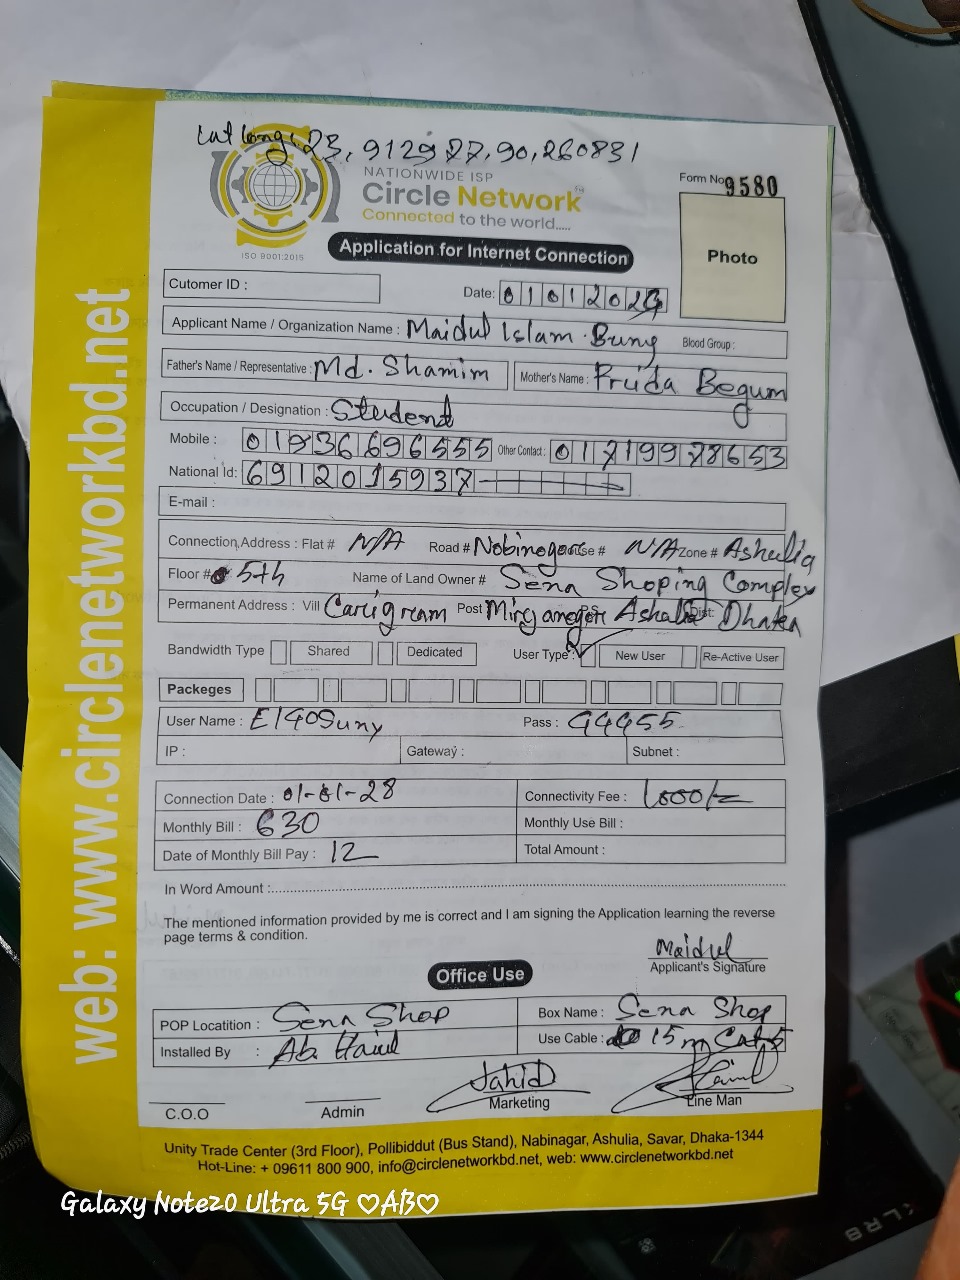 Lat long: 23.912927.90.260831
NATIONWIDE ISP
Circle Network
Connected to the world.....
ISO 9001:2015
Form No 9580
Photo
Application for Internet Connection
Cutomer ID :
Date: 01012023
Applicant Name / Organization Name : Maidul Islam Blood Group :
Father's Name / Representative : Md. Shamim Mother's Name : Frida Begum
Occupation / Designation : Student
Mobile : 01936696555 Other Contact : 01719978653
National Id: 6912015937
E-mail :
Connection Address : Flat # N/A Road # Nobinogor House # N/A Zone # Ashulia
Floor # 5th Name of Land Owner # Sena Shoping Complex
Permanent Address : Vill Post Dist: Dhaka
Bandwidth Type Shared Dedicated User Type : New User Re-Active User
Packeges
User Name : Pass : 99955
IP : Gateway : Subnet :
Connection Date : 01-01-23 Connectivity Fee : 1000/=
Monthly Bill : 630 Monthly Use Bill :
Date of Monthly Bill Pay : 12 Total Amount :
In Word Amount :
The mentioned information provided by me is correct and I am signing the Application learning the reverse
page terms & condition.
Maidul
Applicant's Signature
Office Use
POP Locatition : Sena Shop Box Name : Sena Shop
Installed By : Ab. Use Cable : 15m Cat5
Jahid
C.O.O Admin Marketing Line Man
Unity Trade Center (3rd Floor), Pollibiddut (Bus Stand), Nabinagar, Ashulia, Savar, Dhaka-1344
Hot-Line: + 09611 800 900, info@circlenetworkbd.net, web: www.circlenetworkbd.net
web: www.circlenetworkbd.net
Galaxy Note20 Ultra 5G ♡AB♡